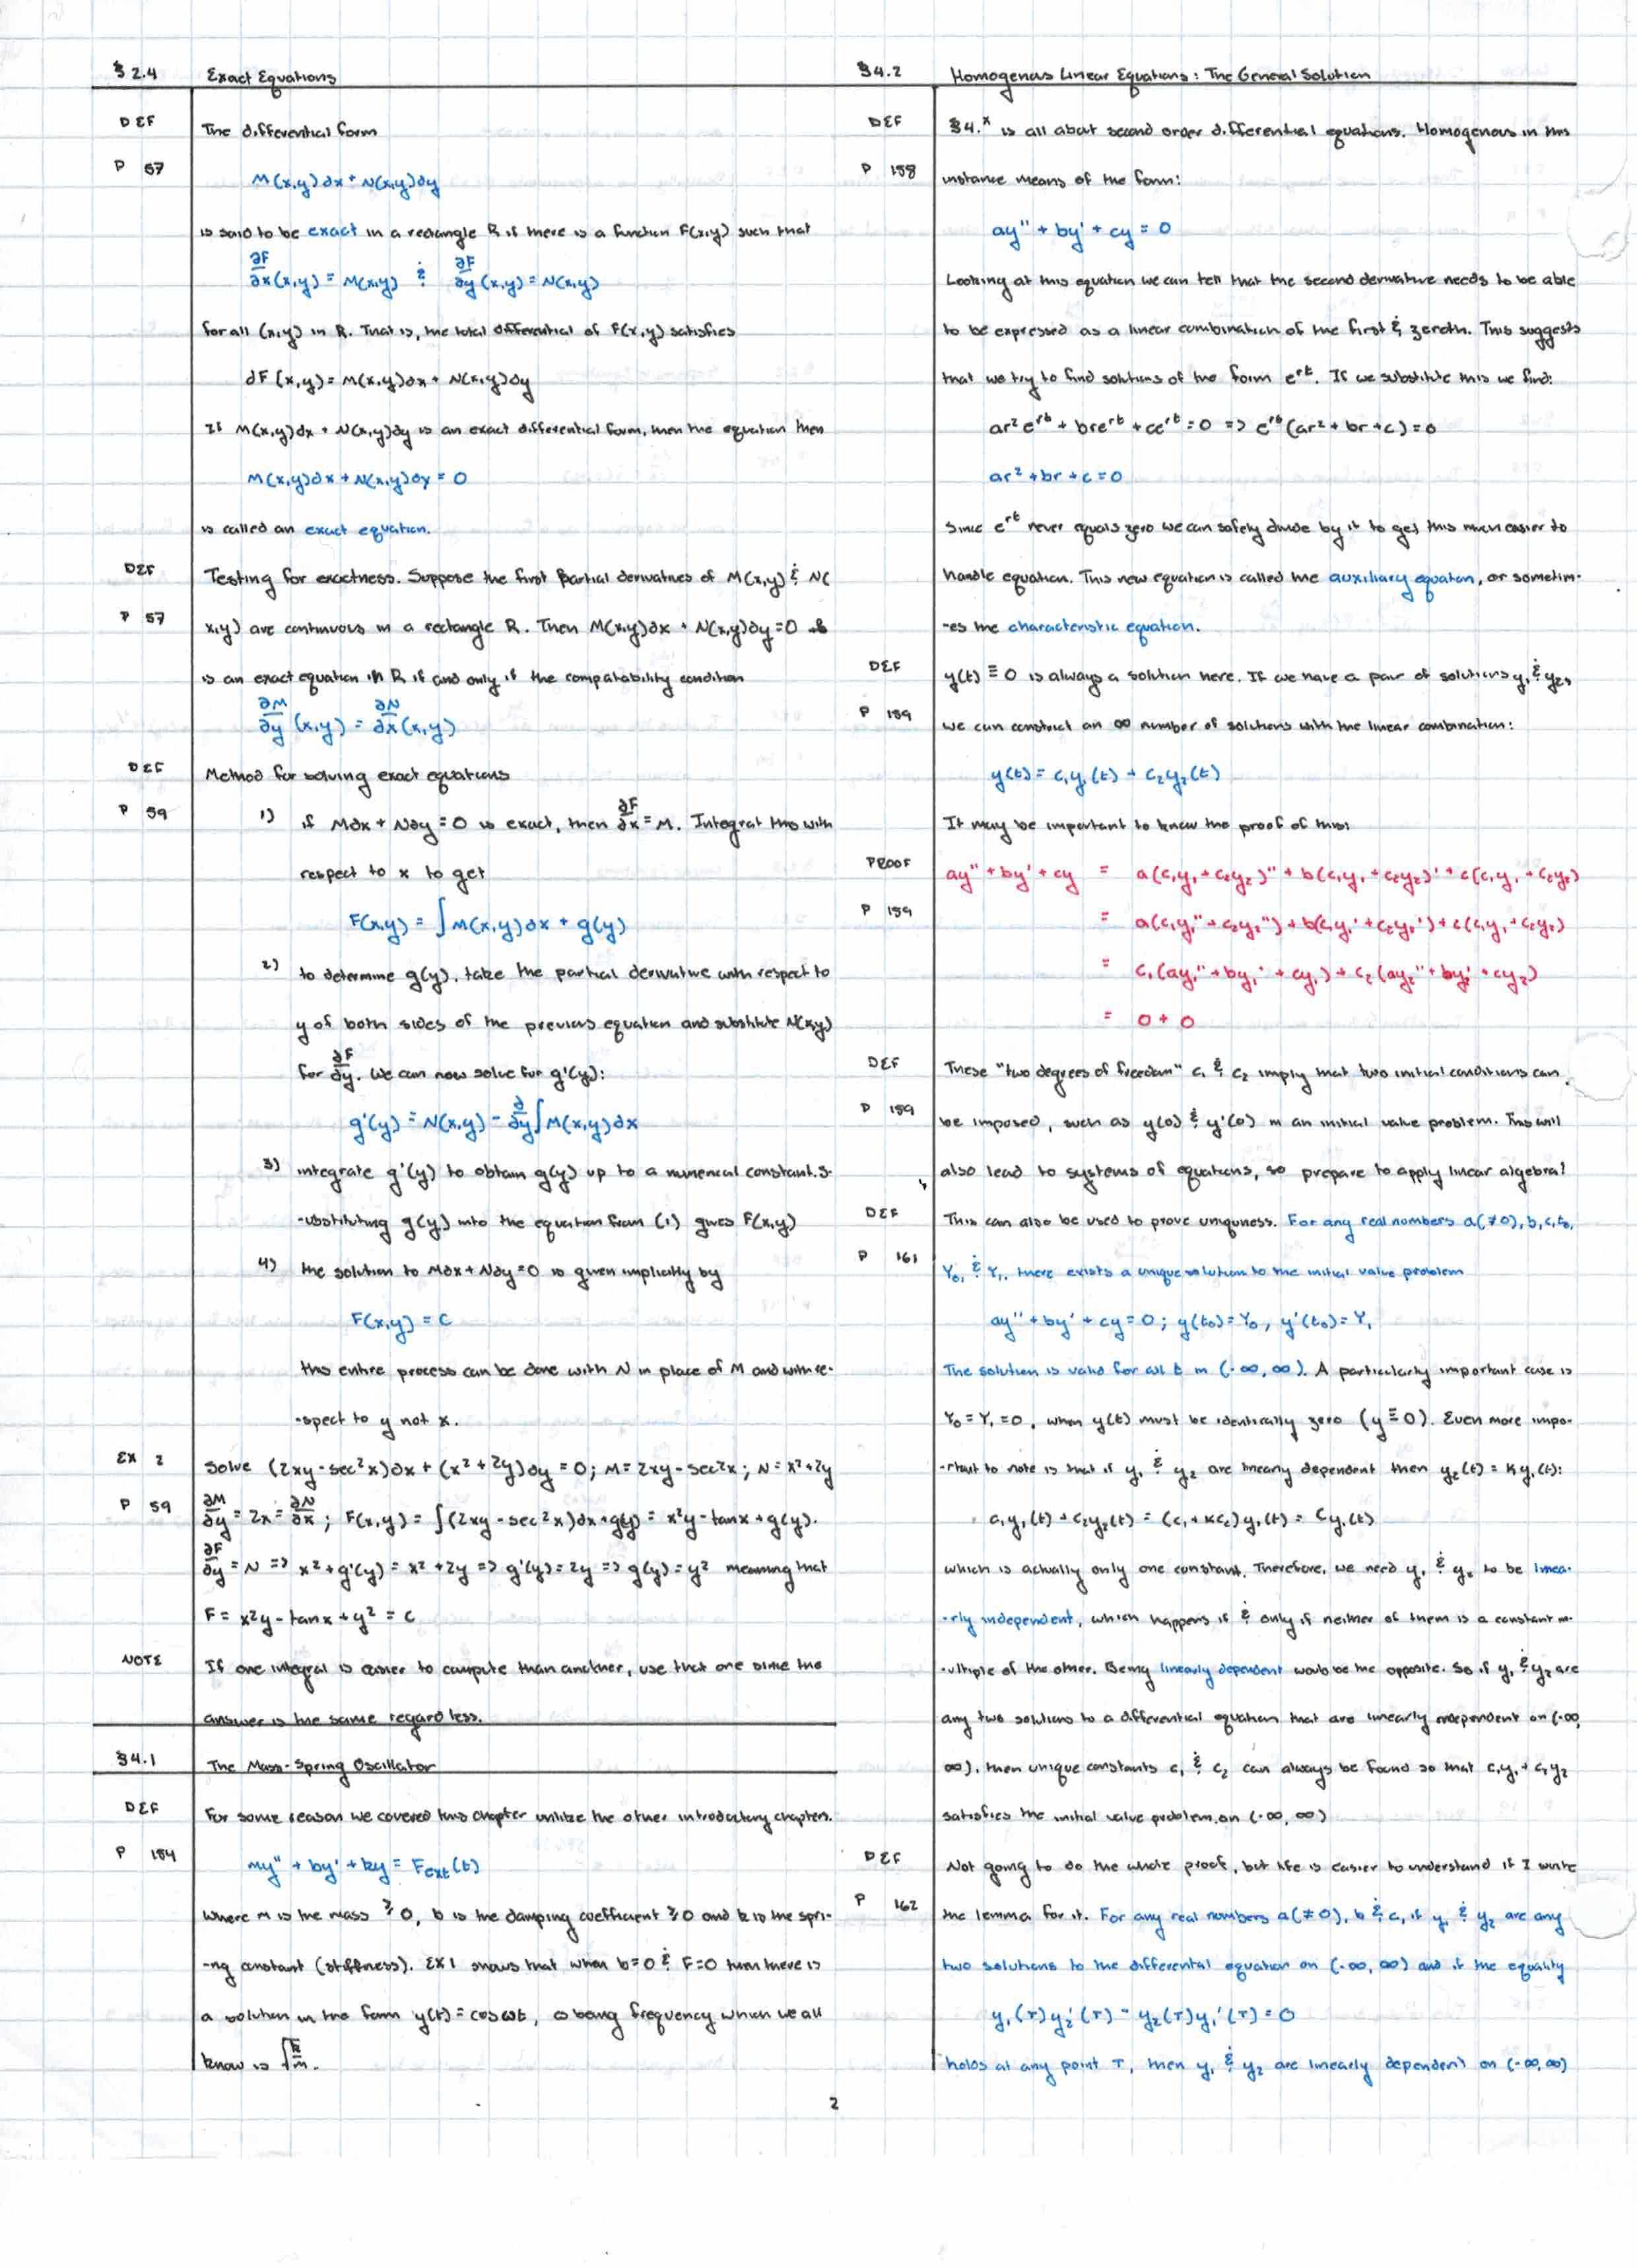 § 2.4 Exact Equations
DEF The differential form
P 57 M(x,y)∂x + N(x,y)∂y
is said to be exact in a rectangle R if there is a function F(x,y) such that
∂F/∂x (x,y) = M(x,y) & ∂F/∂y (x,y) = N(x,y)
for all (x,y) in R. That is, the total differential of F(x,y) satisfies
∂F(x,y) = M(x,y)∂x + N(x,y)∂y
If M(x,y)∂x + N(x,y)∂y is an exact differential form, then the equation then
M(x,y)∂x + N(x,y)∂y = 0
is called an exact equation.
DEF Testing for exactness. Suppose the first partial derivatives of M(x,y) & N(
P 57 x,y) are continuous in a rectangle R. Then M(x,y)∂x + N(x,y)∂y = 0
is an exact equation in R if and only if the compatability condition
∂M/∂y (x,y) = ∂N/∂x (x,y)
DEF Method for solving exact equations
P 59 1) if M∂x + N∂y = 0 is exact, then ∂F/∂x = M. Integrat this with
respect to x to get
F(x,y) = ∫M(x,y)∂x + g(y)
2) to determine g(y), take the partial derivative with respect to
y of both sides of the previous equation and substitute N(x,y)
for ∂F/∂y. We can now solve for g'(y):
g'(y) = N(x,y) - ∂/∂y ∫M(x,y)∂x
3) integrate g'(y) to obtain g(y) up to a numerical constant. S-
-ubstituting g(y) into the equation from (1) gives F(x,y)
4) the solution to M∂x + N∂y = 0 is given implicitly by
F(x,y) = C
this entire process can be done with N in place of M and with re-
-spect to y not x.
EX 2 Solve (2xy - sec²x)∂x + (x² + 2y)∂y = 0; M = 2xy - sec²x; N = x² + 2y
P 59 ∂M/∂y = 2x = ∂N/∂x; F(x,y) = ∫(2xy - sec²x)∂x + g(y) = x²y - tanx + g(y).
∂F/∂y = N => x² + g'(y) = x² + 2y => g'(y) = 2y => g(y) = y² meaning that
F = x²y - tanx + y² = c
NOTE If one integral is easier to compute than another, use that one since the
answer is the same regardless.
§4.1 The Mass-Spring Oscillator
DEF For some reason we covered this chapter unlike the other introductory chapters.
P 154 my'' + by' + ky = Fext(t)
Where m is the mass ≥ 0, b is the damping coefficient ≥ 0 and k is the spri-
-ng constant (stiffness). EX 1 shows that when b=0 & F=0 then there is
a solution in the form y(t) = cos ωt, ω being frequency which we all
know is √(k/m).
§4.2 Homogenous Linear Equations: The General Solution
DEF §4.* is all about second order differential equations. Homogenous in this
P 158 instance means of the form:
ay'' + by' + cy = 0
Looking at this equation we can tell that the second derivative needs to be able
to be expressed as a linear combination of the first & zeroth. This suggests
that we try to find solutions of the form e^rt. If we substitute this we find:
ar²e^rt + bre^rt + ce^rt = 0 => e^rt(ar² + br + c) = 0
ar² + br + c = 0
Since e^rt never equals zero we can safely divide by it to get this much easier to
handle equation. This new equation is called the auxiliary equation, or sometim-
-es the characteristic equation.
DEF y(t) ≡ 0 is always a solution here. If we have a pair of solutions y₁ & y₂,
P 159 we can construct an ∞ number of solutions with the linear combination:
y(t) = c₁y₁(t) + c₂y₂(t)
It may be important to know the proof of this:
PROOF ay'' + by' + cy = a(c₁y₁ + c₂y₂)'' + b(c₁y₁ + c₂y₂)' + c(c₁y₁ + c₂y₂)
P 159 = a(c₁y₁'' + c₂y₂'') + b(c₁y₁' + c₂y₂') + c(c₁y₁ + c₂y₂)
= c₁(ay₁'' + by₁' + cy₁) + c₂(ay₂'' + by₂' + cy₂)
= 0 + 0
DEF These "two degrees of freedom" c₁ & c₂ imply that two initial conditions can
P 159 be imposed, such as y(0) & y'(0) in an initial value problem. This will
also lead to systems of equations, so prepare to apply linear algebra!
DEF This can also be used to prove uniquness. For any real numbers a(≠0), b, c, t₀,
P 161 Y₀, & Y₁, there exists a unique solution to the initial value problem
ay'' + by' + cy = 0; y(t₀) = Y₀, y'(t₀) = Y₁
The solution is valid for all t in (-∞, ∞). A particularly important case is
Y₀ = Y₁ = 0, when y(t) must be identically zero (y ≡ 0). Even more impo-
-rtant to note is that if y₁ & y₂ are lineary dependent then y₂(t) = Ky₁(t):
c₁y₁(t) + c₂y₂(t) = (c₁ + Kc₂)y₁(t) = Cy₁(t)
which is actually only one constant. Therefore, we need y₁ & y₂ to be linea-
-rly independent, which happens if & only if neither of them is a constant m-
-ultiple of the other. Being linearly dependent would be the opposite. So if y₁ & y₂ are
any two solutions to a differential equation that are linearly independent on (-∞,
∞), then unique constants c₁ & c₂ can always be found so that c₁y₁ + c₂y₂
satisfies the initial value problem on (-∞, ∞)
DEF Not going to do the whole proof, but life is easier to understand if I write
P 162 the lemma for it. For any real numbers a(≠0), b & c, if y₁ & y₂ are any
two solutions to the differental equation on (-∞, ∞) and if the equality
y₁(τ)y₂'(τ) - y₂(τ)y₁'(τ) = 0
holds at any point τ, then y₁ & y₂ are linearly dependent on (-∞, ∞)
2